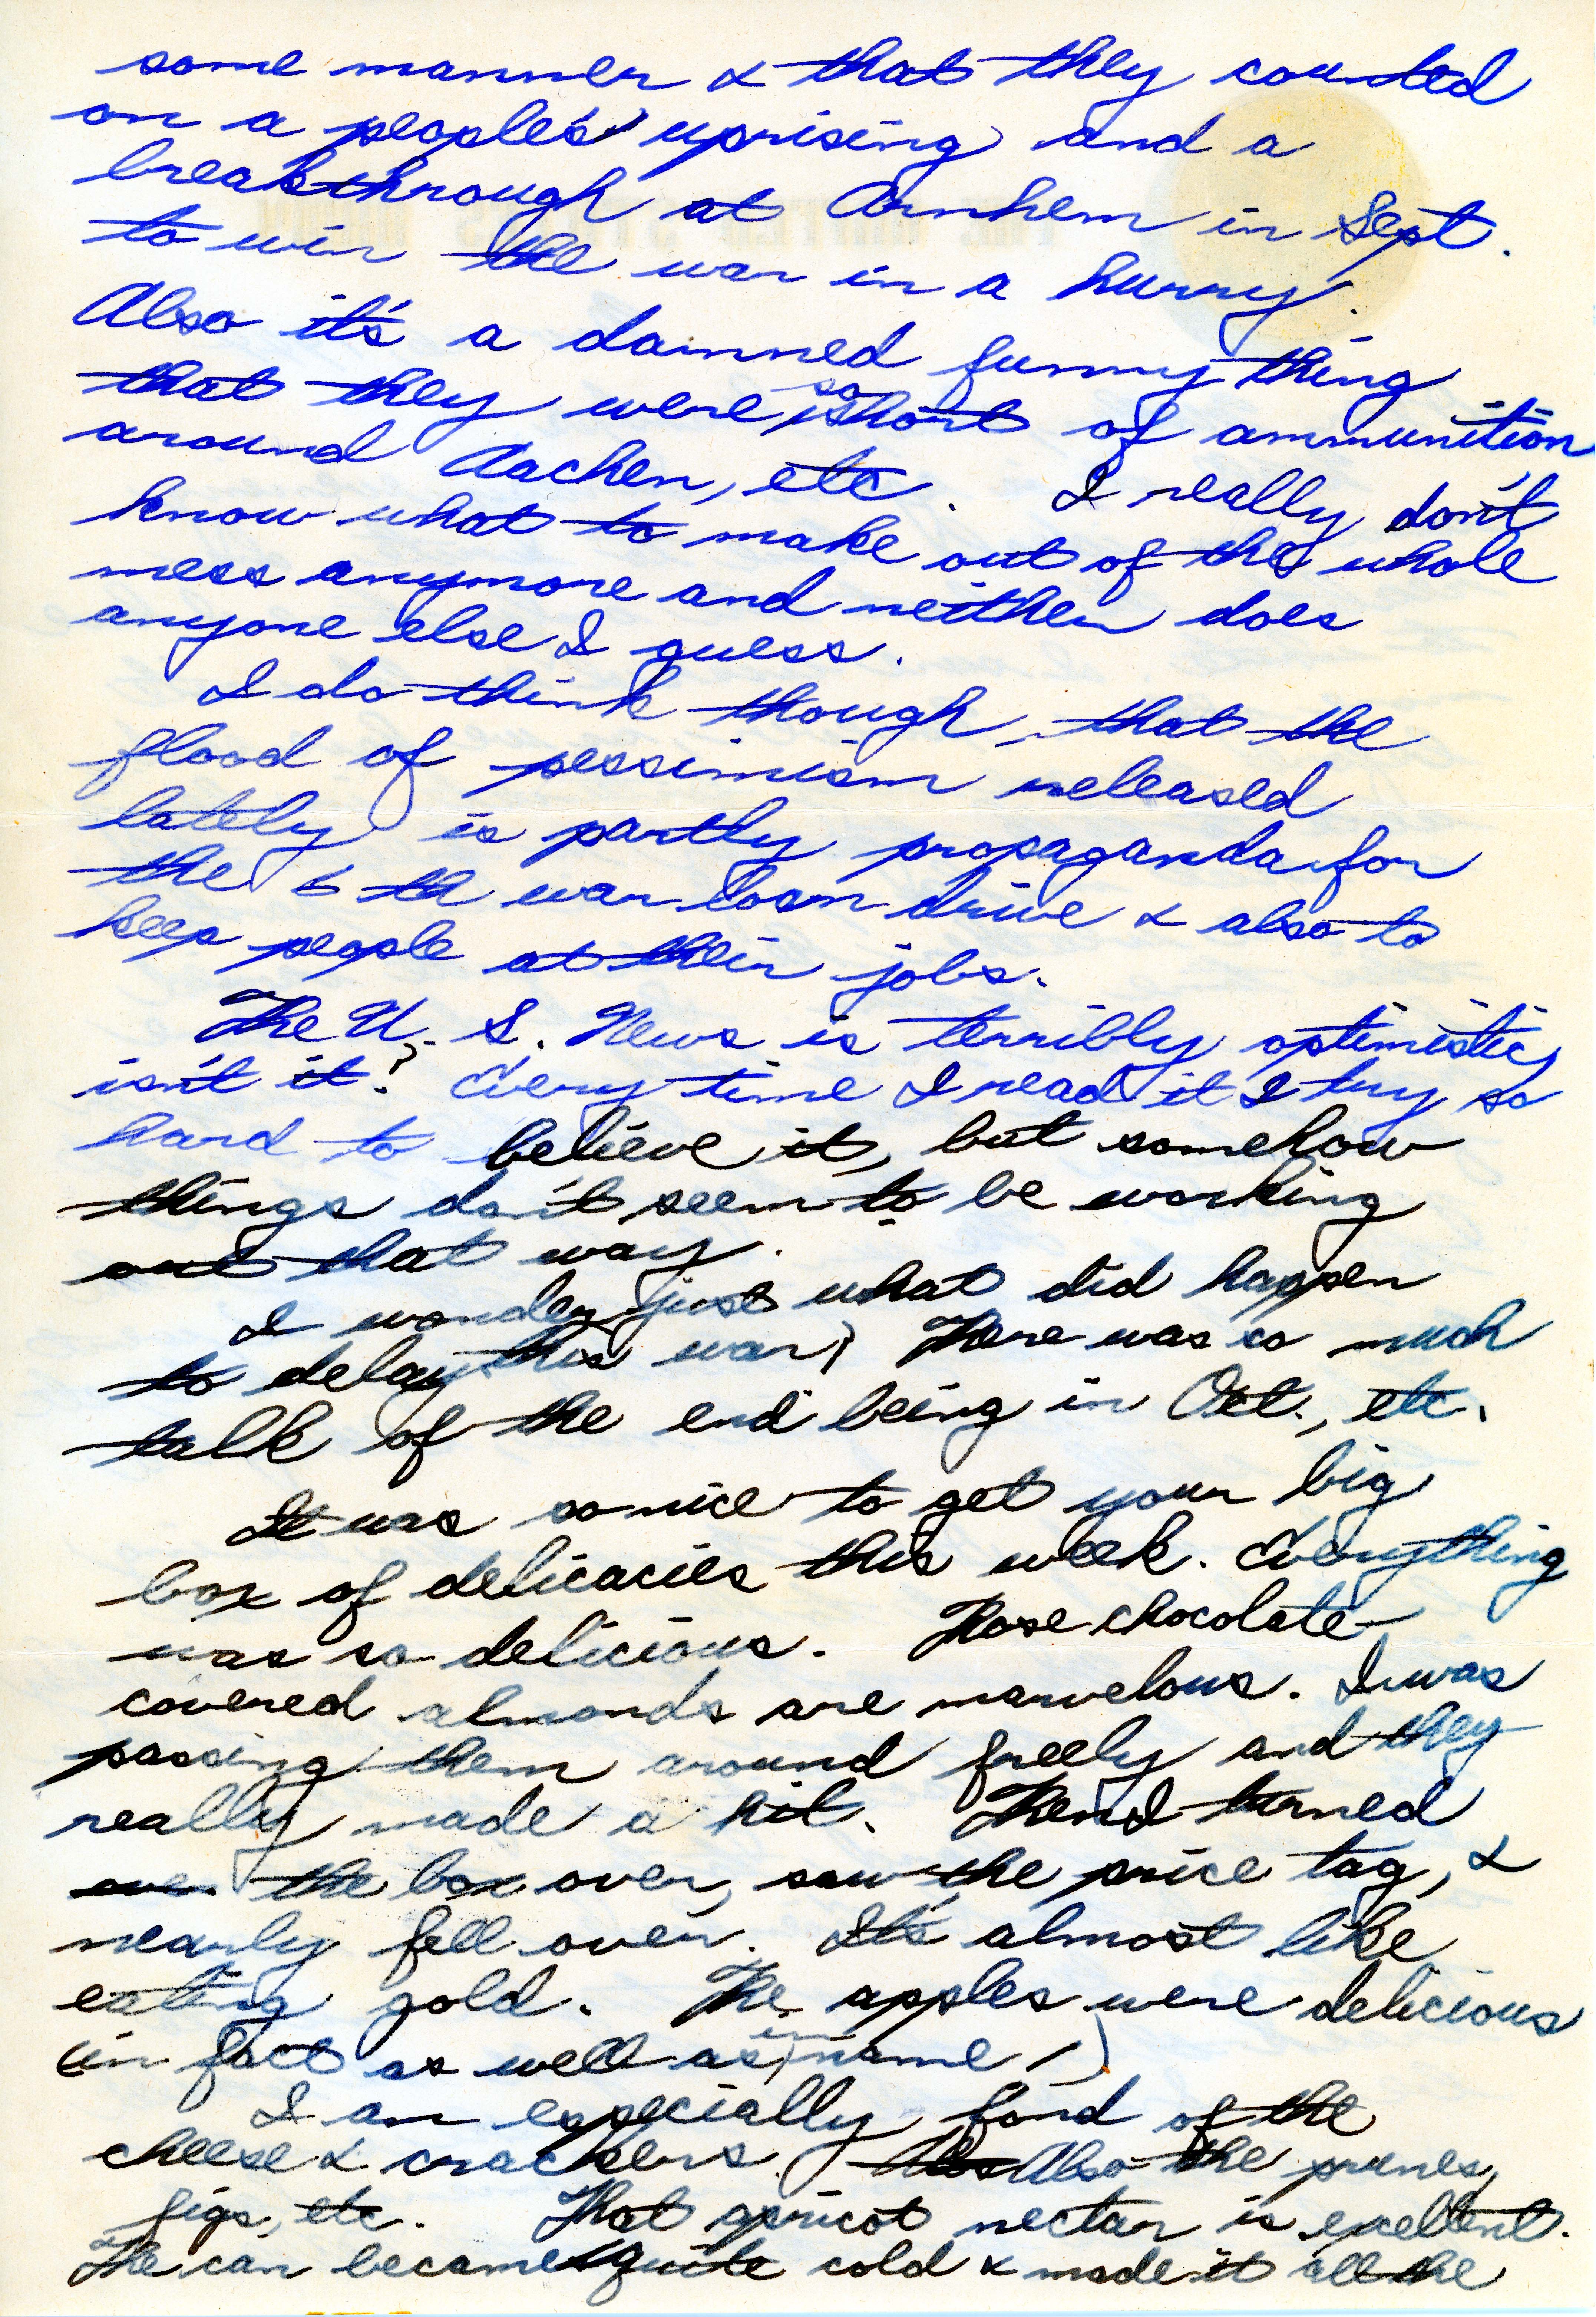 some manner & that they counted
on a people's uprising and a
breakthrough at Arnhem in Sept.
to win the war in a hurry.
Also it's a damned funny thing
that they were so short of ammunition
around Aachen, etc. I really don't
know what to make out of the whole
mess anymore and neither does
anyone else I guess.
I do think though, that the
flood of pessimism released
lately is partly propaganda for
the 6th war loan drive & also to
keep people at their jobs.
The U. S. News is terribly optimistic,
isn't it? Every time I read it I try so
hard to believe it, but somehow
things don't seem to be working
out that way.
I wonder just what did happen
to delay this war? There was so much
talk of the end being in Oct., etc.
It was so nice to get your big
box of delicacies this week. Everything
was so delicious. Those chocolate-
covered almonds are marvelous. I was
passing them around freely and they
really made a hit. Then I turned
over the box over, saw the price tag, &
nearly fell over. It's almost like
eating gold. The apples were delicious
(in fact as well as in name!)
I am especially fond of the
cheese & crackers. Also Also the prunes,
figs, etc. That apricot nectar is excellent.
The can became quite cold & made it all the